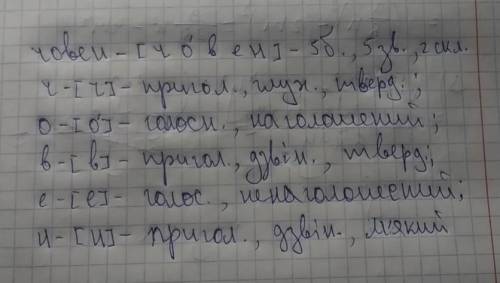 човен - [ч о́ в е н] - 5б., 5зв., 2 скл.
ч - [ч] - пригол., глух., тверд.;
о - [о́] - голосн., наголошений;
в - [в] - пригол., дзвін., тверд.;
е - [е] - голос., ненаголошений;
н - [н] - пригол., дзвін., м'який